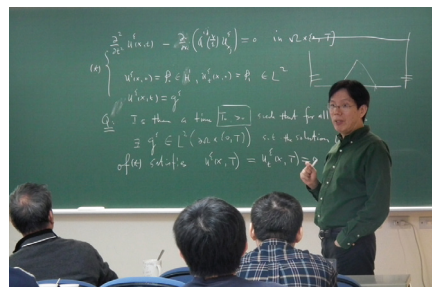 ∂²/∂t² u^ε(x,t) − ∂/∂x_i (a^{ij}(x/ε) u^ε_{x_j}) = 0 in Ω×(0,T)
(*) { u^ε(x,0) = f_0 ∈ H, u^ε_t(x,0) = f_1 ∈ L²
u^ε(x,t) = g^ε
Q: Is there a time T_0 > 0 such that for all
∃ g^ε ∈ L²(∂Ω × (0,T)) s.t. the solution
of (*) satisfies u^ε(x,T) = u^ε_t(x,T) =